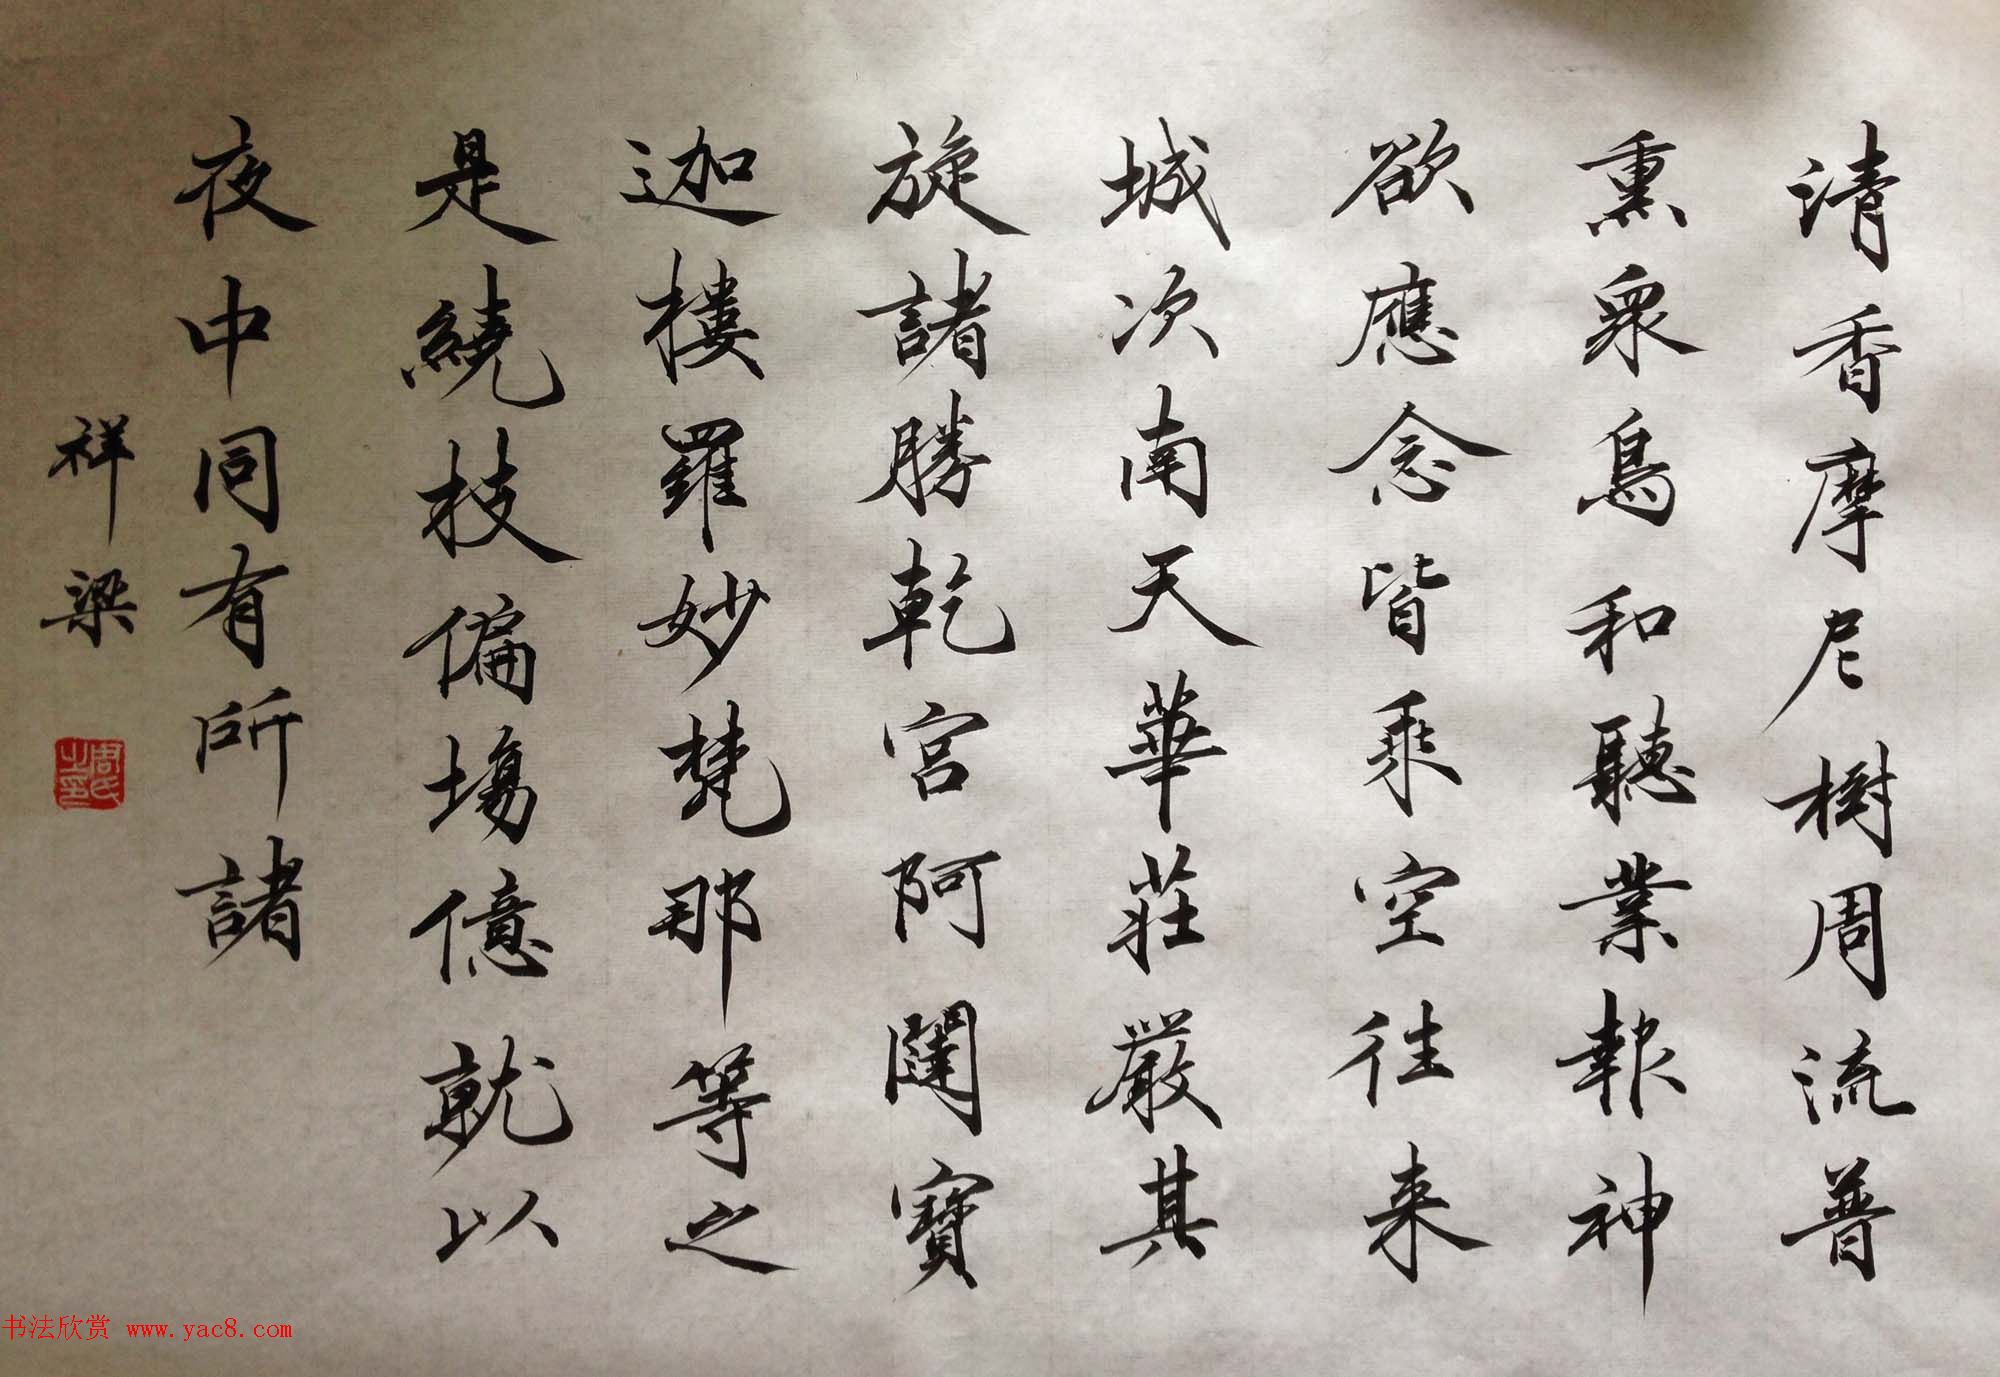 清香摩尼樹周流普
熏衆鳥和聽業報神
欲應念皆乘空往来
城次南天華莊嚴其
旋諸勝乾宮阿闥寶
迦樓羅妙梵那等之
是繞枝偏場億就以
夜中同有所諸
祥梁
周氏之印
书法欣赏 www.yac8.com